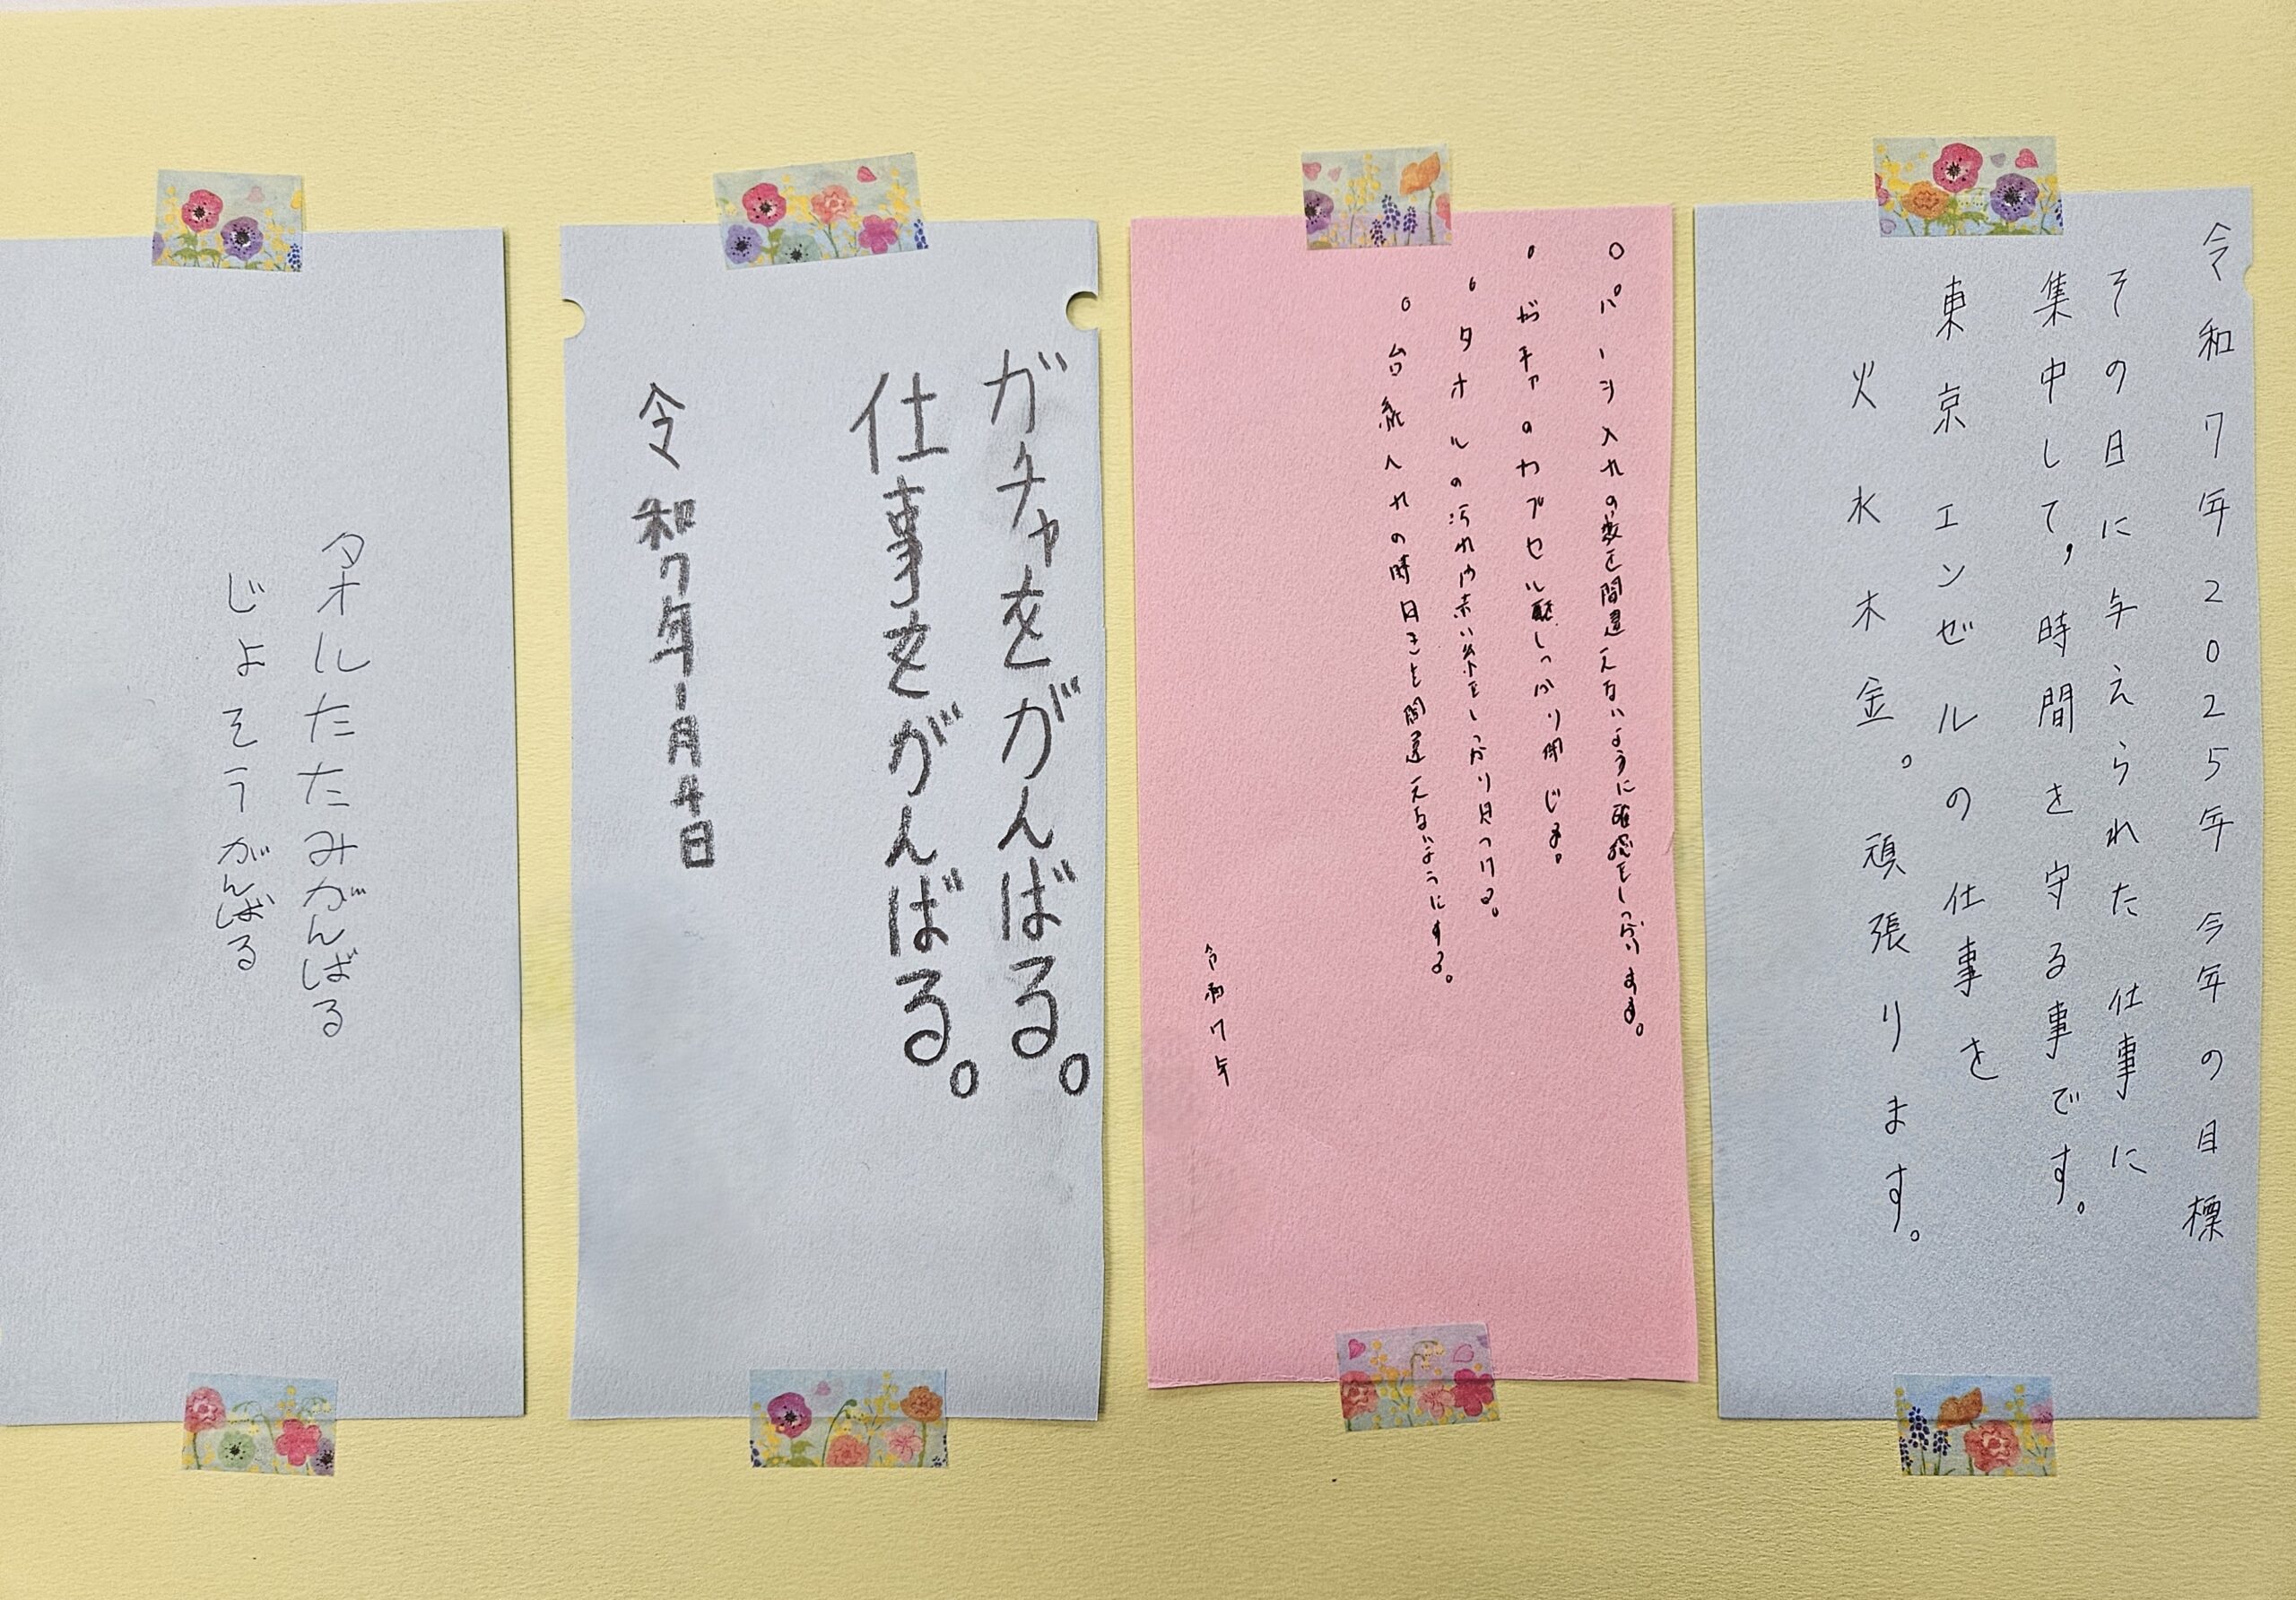 令和7年2025年 今年の目標
その日に与えられた 仕事に
集中して、時間を守る事です。
東京エンゼルの仕事を
火水木金。頑張ります。
○パーツ入れの数を間違えないように確認をしっかりする。
・ガチャのカプセル しっかり閉じる。
・タオルの汚れや赤い糸をしっかり見つける。
○台紙入れの時 間違えないようにする。
令和7年
ガチャをがんばる。
仕事をがんばる。
令和7年1月4日
タオルたたみがんばる
じよそうがんばる